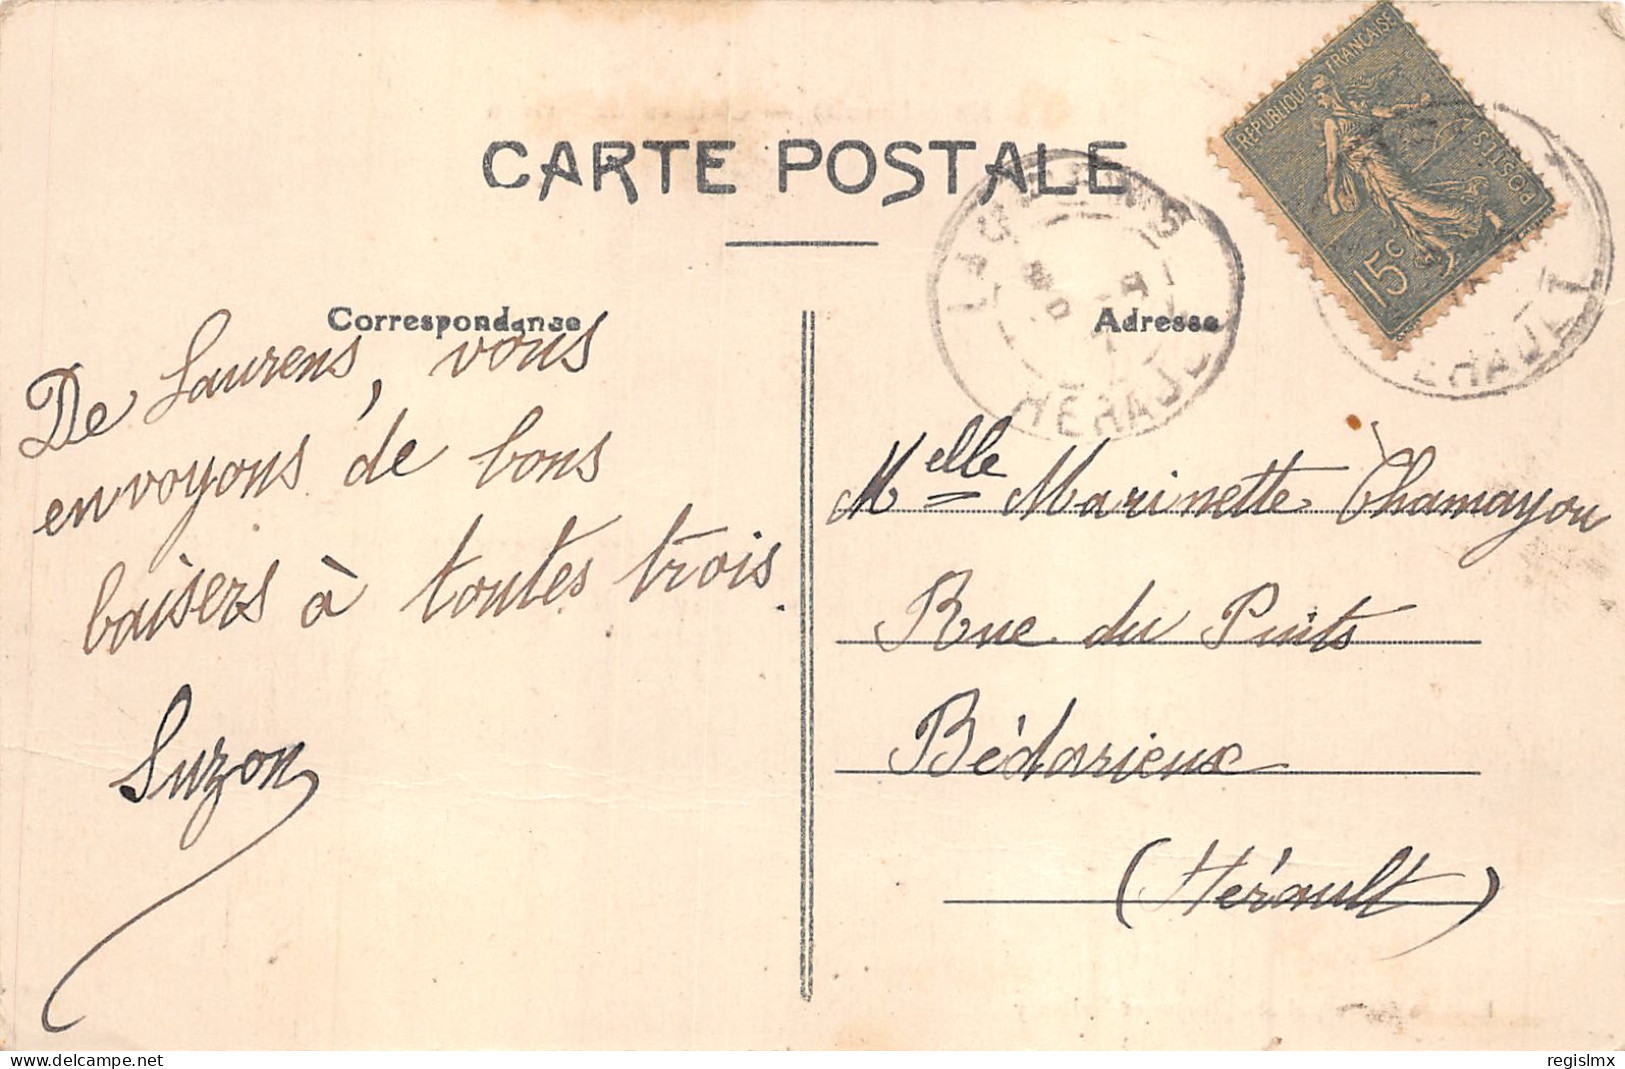 CARTE POSTALE
Correspondance
Adresse
De Laurens, vous
envoyons de bons
baisers à toutes trois.
Suzon
Melle Marinette Chamayou
Rue du Puits
Bédarieux
(Hérault)
REPUBLIQUE FRANÇAISE
POSTES
15c
LAURENS
HERAULT
HERAULT
regislmx